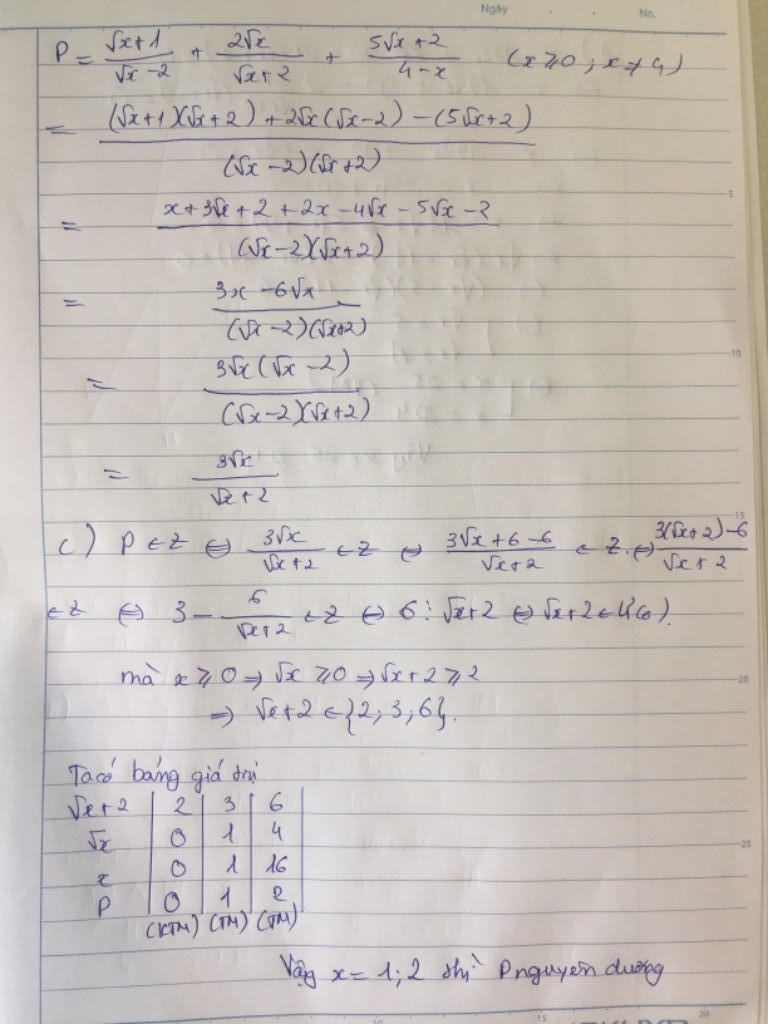 Ngày . . No.
P = (√x+1)/(√x-2) + 2√x/(√x+2) + (5√x+2)/(4-x) (x ⩾ 0 ; x ≠ 4)
= ((√x+1)(√x+2) + 2√x(√x-2) - (5√x+2))/((√x-2)(√x+2))
= (x+3√x+2+2x-4√x-5√x-2)/((√x-2)(√x+2))
= (3x-6√x)/((√x-2)(√x+2))
= (3√x(√x-2))/((√x-2)(√x+2))
= 3√x/(√x+2)
c) P ∈ Z ⇔ 3√x/(√x+2) ∈ Z ⇔ (3√x+6-6)/(√x+2) ∈ Z ⇔ (3(√x+2)-6)/(√x+2)
∈ Z ⇔ 3 - 6/(√x+2) ∈ Z ⇔ 6 ⋮ √x+2 ⇔ √x+2 ∈ Ư(6)
mà x ⩾ 0 ⇒ √x ⩾ 0 ⇒ √x+2 ⩾ 2
⇒ √x+2 ∈ {2; 3; 6}.
Ta có bảng giá trị
√x+2 | 2 | 3 | 6
√x | 0 | 1 | 4
x | 0 | 1 | 16
P | 0 | 1 | 2
(KTM) (TM) (TM)
Vậy x = 1; 2 thì P nguyên dương
5
10
15
20
25
10 15 20